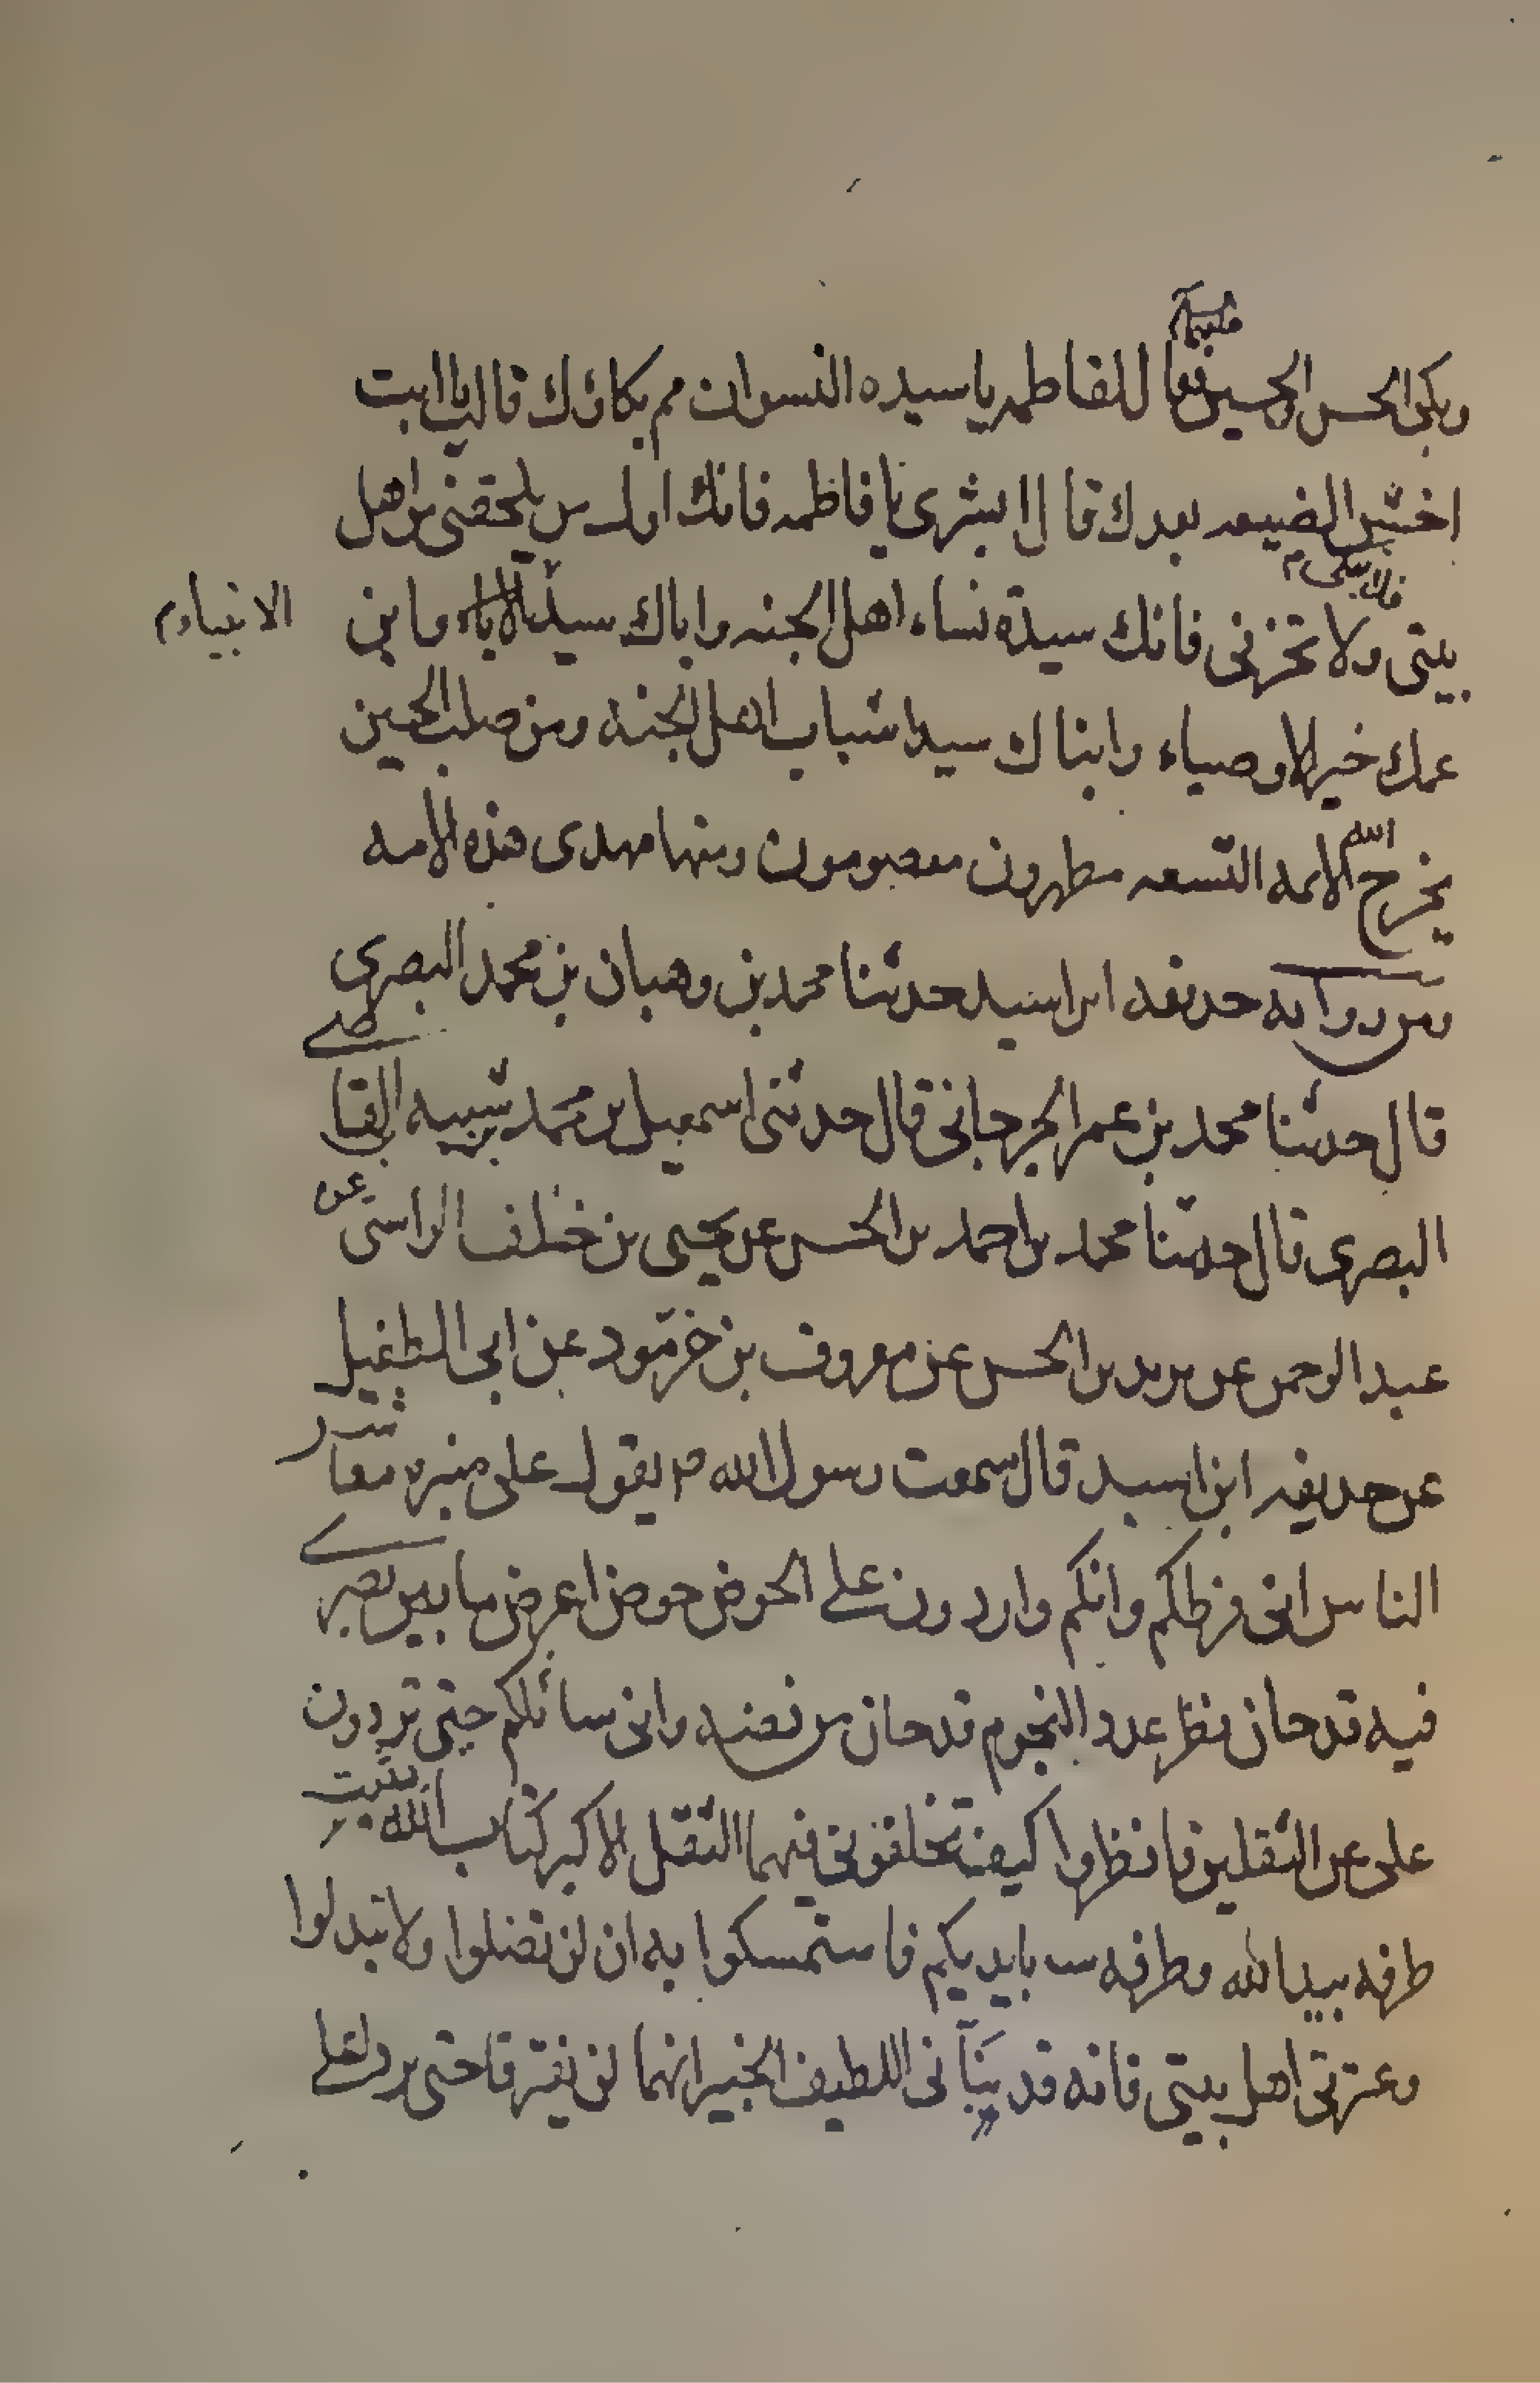 عليهما
وبكى الحسن والحسين فقا ل لفاطمه يا سيده النسوان مم بكاؤك قالت يا ابت
اخشى الضيعه بعدك قا ل ابشرى يا فاطمه فانك اول من يلحقنى من اهل
فلا تبكى م
بيتى ولا تحزنى فانك سيدة نساء اهل الجنه واباك سيد الاباء وا بن الانبياء م
عمك خير الاوصياء وابناك سيدا شباب اهل الجنه ومن صلب الحسين
يخرج الله الائمه التسعه مطهرون معصومون ومنها مهدى هذه الامه
ومن روايه حذيفه ابن اسيد حدثنا محمد بن وهبان بن محمد البصرى
قال حدثنا محمد بن عمر الجرجانى قال حدثنى اسمعيل بن محمد شيبه القا ضى
البصرى قال حدثنا محمد بن احمد بن الحسن عن يحيى بن خلف الراسى عن
عبد الرحمن عن يزيد بن الحسن عن معروف بن خرمود عن ابى الطفيل
عن حذيفه ابن اسيد قال سمعت رسول الله ص يقول على منبره معا شر
الناس انى فرطكم وانكم واردون على الحوض حوضا عرض ما بين بصرى
فيه قدحان عدد النجوم قدحان من فضه وانى سائلكم حتى تردون
على عن الثقلين فانظروا كيف تخلفونى فيهما الثقل الاكبر كتاب الله
طرفه بيد الله وطرفه بايديكم فاستمسكوا به ان لن تضلوا ولا تبدلوا
وعترتى اهل بيتى فانه قد نبأ نى اللطيف الخبير انهما لن يفترقا حتى يردا على